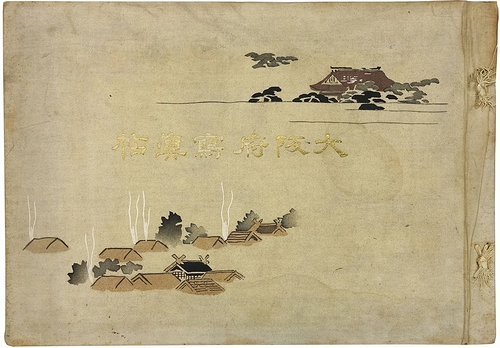 大阪府寫眞帖